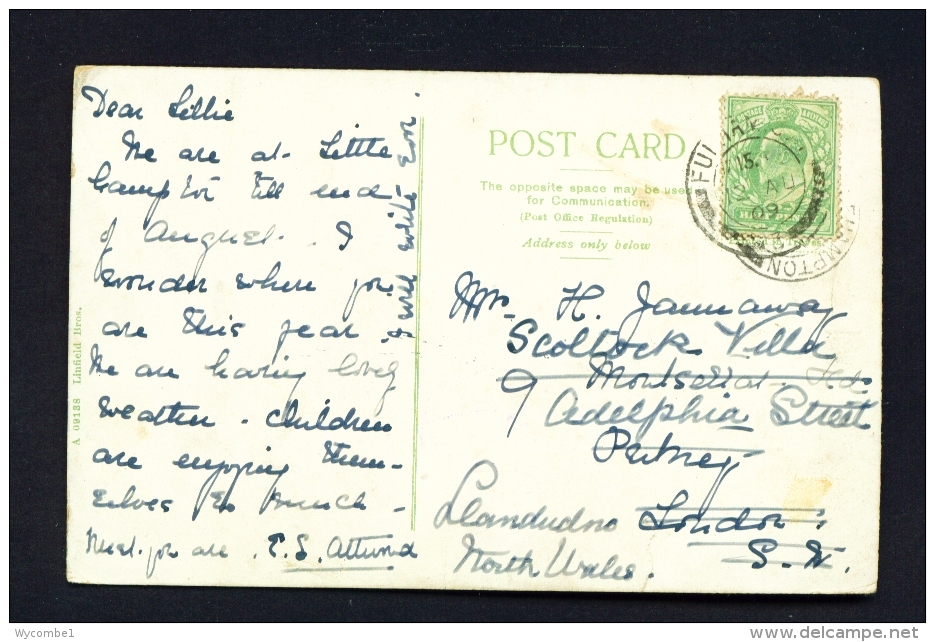 Dear Lillie
We are at Little
hampton till end
of August. I
wonder where you
are this year.
We are having lovely
weather. children
are enjoying them-
selves so much -
you are. E. S. Attwood
I will write soon
A 09138 Linfield Bros.
POST CARD
The opposite space may be used
for Communication.
(Post Office Regulation)
Address only below
Mrs. H. Jannaway
Scoltock Villa
Montserrat Rd
9 Adelphia Street
Putney
London
S.W.
Llandudno
North Wales.
AU
09
Wycombe1
www.delcampe.net